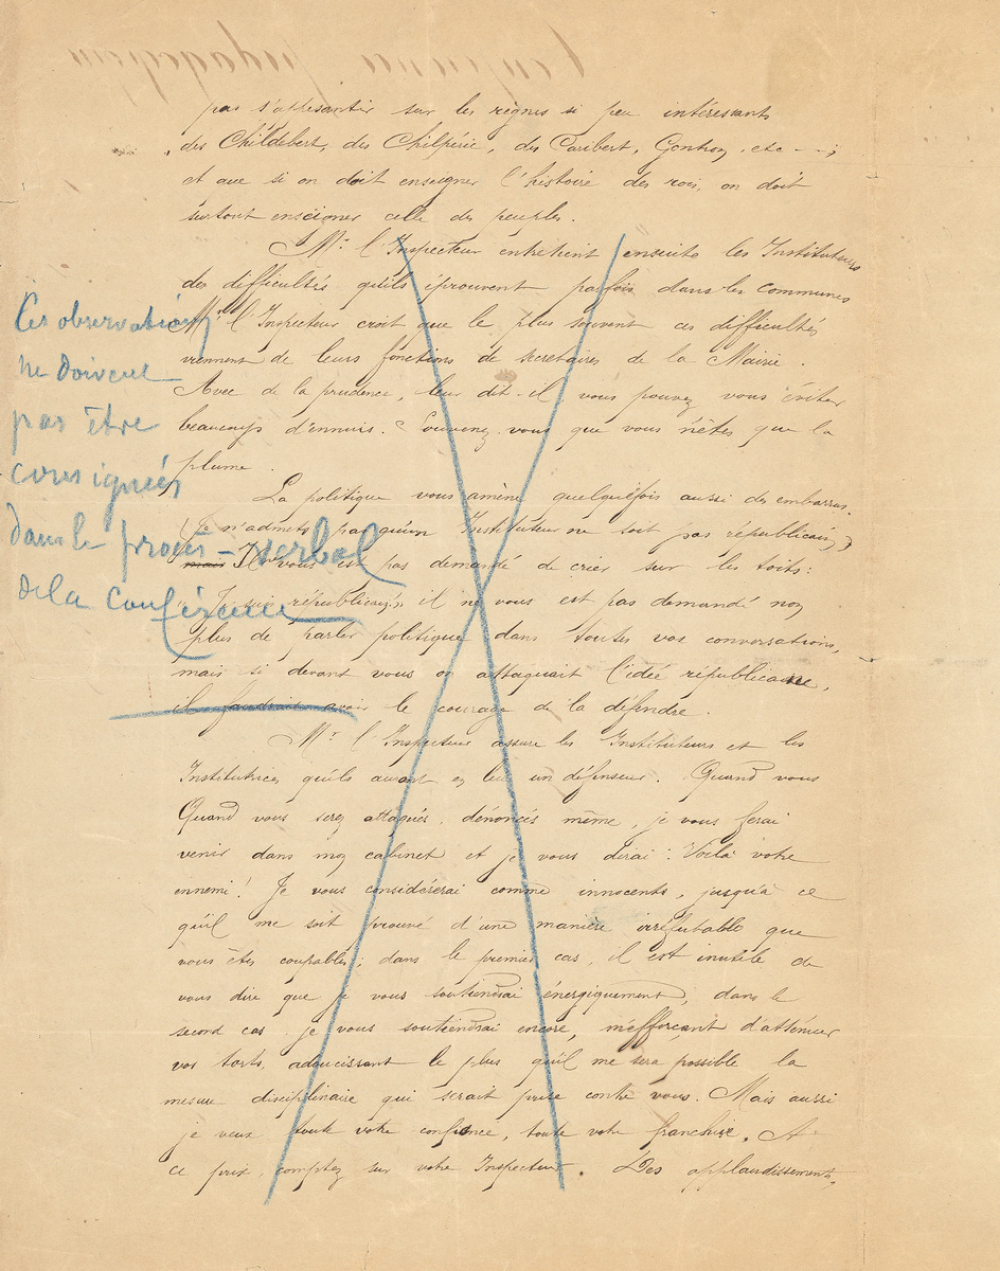 pas s'appesantir sur les règnes si peu intéressants
des Childebert, des Chilpéric, des Caribert, Gontran, etc - - ;
et que si on doit enseigner l'histoire des rois, on doit
surtout enseigner celle des peuples.
Mr l'Inspecteur entretient ensuite les Instituteurs
des difficultés qu'ils éprouvent parfois dans les communes
Mr l'Inspecteur croit que le plus souvent ces difficultés
viennent de leurs fonctions de secrétaires de la Mairie.
Avec de la prudence, leur dit-il, vous pouvez vous éviter
beaucoup d'ennuis. Souvenez-vous que vous n'êtes que la
plume.
La politique vous amène quelquefois aussi des embarras.
(Je n'admets pas qu'un Instituteur ne soit pas républicain)
mais Il ne vous est pas demandé de crier sur les toits:
"Je suis républicain" il ne vous est pas demandé non
plus de parler politique dans toutes vos conversations,
mais si devant vous on attaquait l'idée républicaine,
il faudrait avoir le courage de la défendre.
Mr l'Inspecteur assure les Instituteurs et les
Institutrices qu'ils auront en lui un défenseur. Quand vous
Quand vous serez attaqués, dénoncés même, je vous ferai
venir dans mon cabinet et je vous dirai: Voilà votre
ennemi! Je vous considérerai comme innocents, jusqu'à ce
qu'il me soit prouvé d'une manière irréfutable que
vous êtes coupables; dans le premier cas, il est inutile de
vous dire que je vous soutiendrai énergiquement, dans le
second cas je vous soutiendrai encore, m'efforçant d'atténuer
vos torts, adoucissant le plus qu'il me sera possible la
mesure disciplinaire qui serait prise contre vous. Mais aussi
je veux toute votre confiance, toute votre franchise. A
ce prix, comptez sur votre Inspecteur. Des applaudissements,
Ces observations
ne doivent
pas être
consignées
dans le procès-verbal
de la conférence